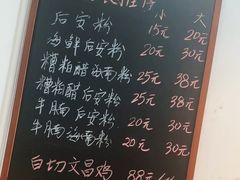 小 大
后安粉 15元 20元
海鲜后安粉 20元 30元
糟粕醋海鸭粉 25元 38元
糟粕醋后安粉 25元 38元
牛腩后安粉 20元 30元
牛腩海鸭粉 20元 30元
白切文昌鸡 88元